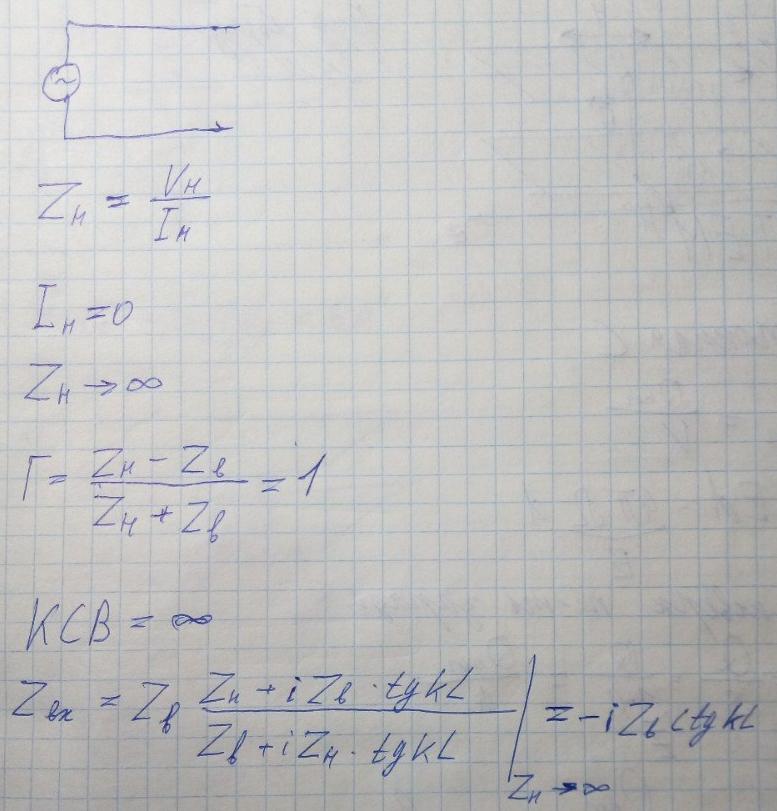 Zн = Vн / Iн
Iн = 0
Zн → ∞
Г = (Zн − Zв) / (Zн + Zв) = 1
КСВ = ∞
Zвх = Zв (Zн + i Zв · tg kL) / (Zв + i Zн · tg kL) | Zн → ∞ = − i Zв ctg kL